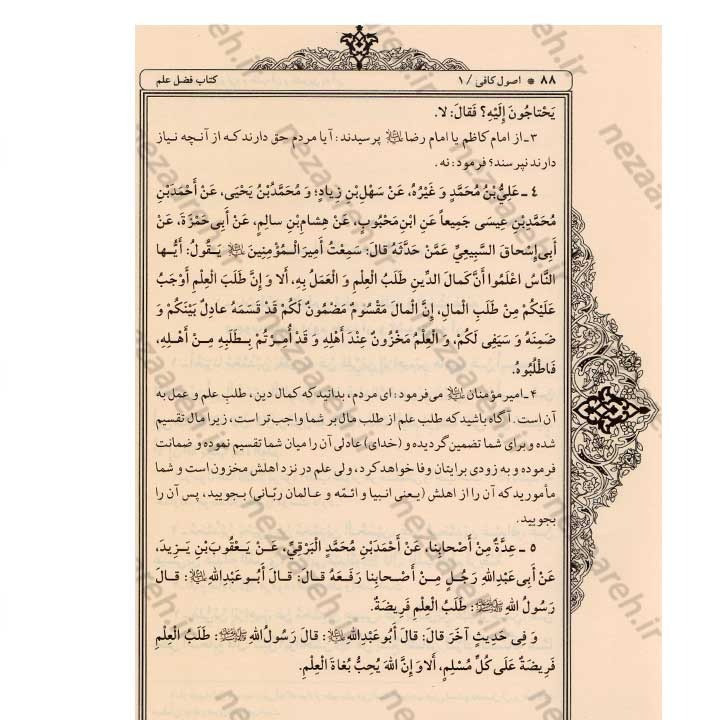 ۸۸ * اصول کافی / ۱
کتاب فضل علم
یَحْتاجُونَ إِلَیْهِ؟ فَقالَ: لا.
۳ـ از امام کاظم یا امام رضا علیه السلام پرسیدند: آیا مردم حق دارند که از آنچه نیاز
دارند نپرسند؟ فرمود: نه.
۴ ـ عَلِیُّ بْنُ مُحَمَّدٍ وَ غَیْرُهُ، عَنْ سَهْلِ بْنِ زِیادٍ؛ وَ مُحَمَّدُ بْنُ یَحْیَی، عَنْ أَحْمَدَ بْنِ
مُحَمَّدِ بْنِ عِیسَی جَمِیعاً عَنِ ابْنِ مَحْبُوبٍ، عَنْ هِشامِ بْنِ سالِمٍ، عَنْ أَبِی حَمْزَةَ، عَنْ
أَبِی إِسْحاقَ السَّبِیعِیِّ عَمَّنْ حَدَّثَهُ قالَ: سَمِعْتُ أَمِیرَ الْمُؤْمِنِینَ علیه السلام یَقُولُ: أَیُّها
النَّاسُ اعْلَمُوا أَنَّ کَمالَ الدِّینِ طَلَبُ الْعِلْمِ وَ الْعَمَلُ بِهِ، أَلا وَ إِنَّ طَلَبَ الْعِلْمِ أَوْجَبُ
عَلَیْکُمْ مِنْ طَلَبِ الْمالِ، إِنَّ الْمالَ مَقْسُومٌ مَضْمُونٌ لَکُمْ قَدْ قَسَمَهُ عادِلٌ بَیْنَکُمْ وَ
ضَمِنَهُ وَ سَیَفِی لَکُمْ، وَ الْعِلْمُ مَخْزُونٌ عِنْدَ أَهْلِهِ وَ قَدْ أُمِرْتُمْ بِطَلَبِهِ مِنْ أَهْلِهِ،
فَاطْلُبُوهُ.
۴ـ امیر مؤمنان علیه السلام می‌فرمود: ای مردم، بدانید که کمال دین، طلب علم و عمل به
آن است. آگاه باشید که طلب علم از طلب مال بر شما واجب‌تر است، زیرا مال تقسیم
شده و برای شما تضمین گردیده و (خدای) عادلی آن را میان شما تقسیم نموده و ضمانت
فرموده و به زودی برایتان وفا خواهد کرد، ولی علم در نزد اهلش مخزون است و شما
مأمورید که آن را از اهلش (یعنی انبیا و ائمّه و عالمان ربّانی) بجویید، پس آن را
بجویید.
۵ ـ عِدَّةٌ مِنْ أَصْحابِنا، عَنْ أَحْمَدَ بْنِ مُحَمَّدٍ الْبَرْقِیِّ، عَنْ یَعْقُوبَ بْنِ یَزِیدَ،
عَنْ أَبِی عَبْدِ اللهِ رَجُلٍ مِنْ أَصْحابِنا رَفَعَهُ قالَ: قالَ أَبُو عَبْدِ اللهِ علیه السلام: قالَ
رَسُولُ اللهِ صلی الله علیه و آله: طَلَبُ الْعِلْمِ فَرِیضَةٌ.
وَ فِی حَدِیثٍ آخَرَ قالَ: قالَ أَبُو عَبْدِ اللهِ علیه السلام: قالَ رَسُولُ اللهِ صلی الله علیه و آله: طَلَبُ الْعِلْمِ
فَرِیضَةٌ عَلَی کُلِّ مُسْلِمٍ، أَلا وَ إِنَّ اللهَ یُحِبُّ بُغاةَ الْعِلْمِ.
nezaareh.ir